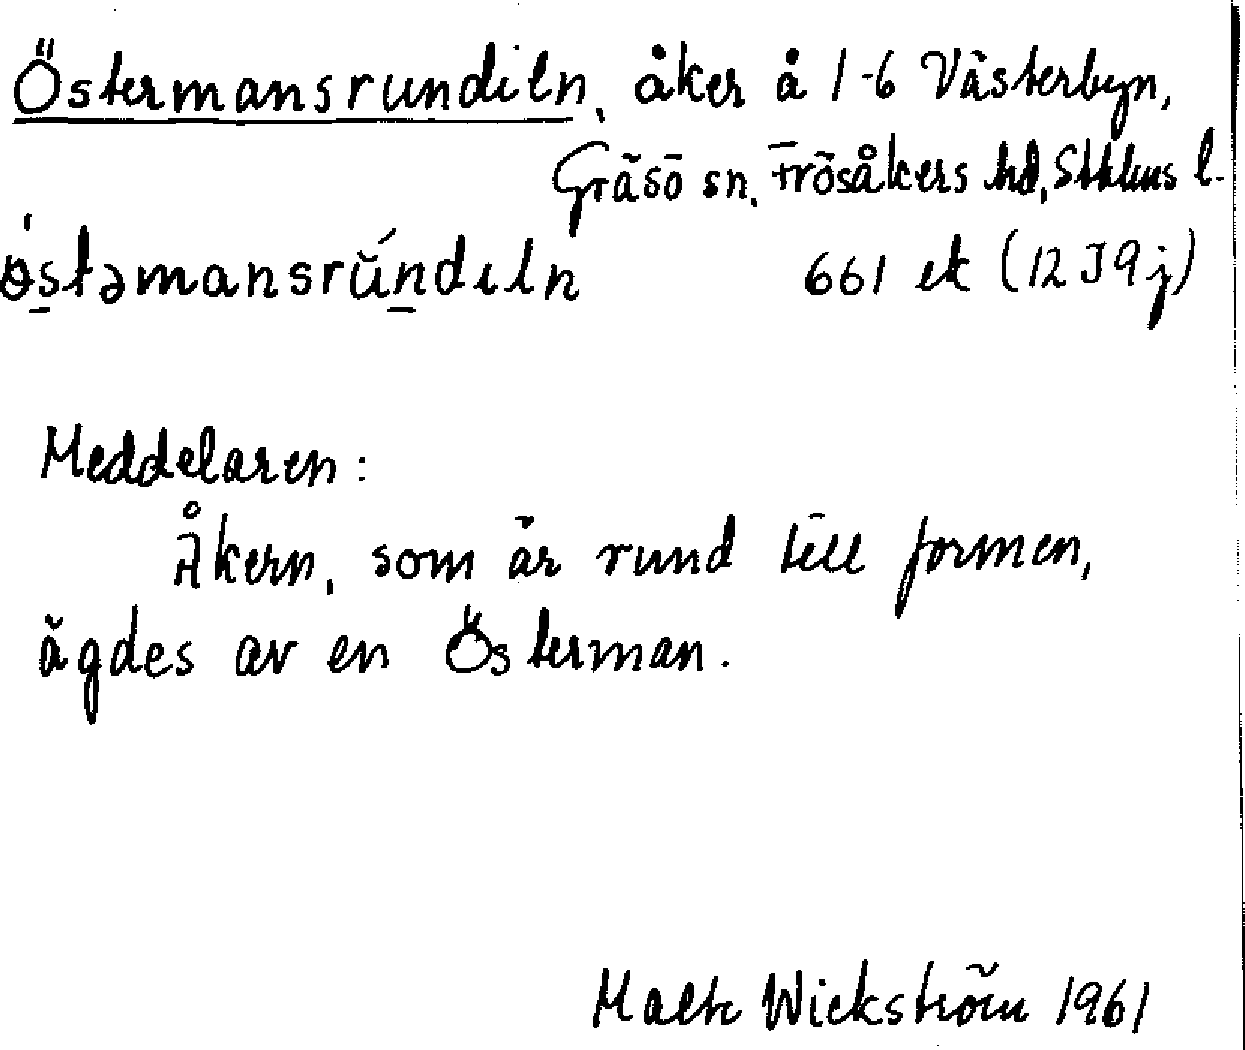 Östermansrundeln, åker å 1-6 Västerbyn,
Gräsö sn, Frösåkers hd, Sthlms l.
östəmansrúndeln 661 ek (12 I 9 j)
Meddelaren:
Åkern, som är rund till formen,
ägdes av en Österman.
Malte Wickström 1961